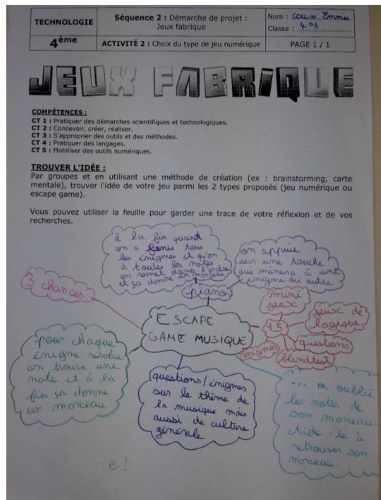 TECHNOLOGIE
4ème
Séquence 2 : Démarche de projet :
Jeux fabrique
ACTIVITÉ 2 : Choix du type de jeu numérique
Nom :
Classe : 4°3
PAGE 1 / 1
JEUX FABRIQUE
COMPÉTENCES :
CT 1 : Pratiquer des démarches scientifiques et technologiques.
CT 2 : Concevoir, créer, réaliser.
CT 3 : S'approprier des outils et des méthodes.
CT 4 : Pratiquer des langages.
CT 5 : Mobiliser des outils numériques.
TROUVER L'IDÉE :
Par groupes et en utilisant une méthode de création (ex : brainstorming, carte
mentale), trouver l'idée de votre jeu parmi les 2 types proposés (jeu numérique ou
escape game).
Vous pouvez utiliser la feuille pour garder une trace de votre réflexion et de vos
recherches.
à la fin quand
on a tous
les énigmes et qu'on
a toutes les notes
on remet dans l'ordre
et ça donne un morceau
on appuie
sur une touche
que mènera à une
énigme ou autre
piano
3 chances
mini
jeux
jeux de
logique
15
énigmes
questions
blindtest
ESCAPE
GAME MUSIQUE
pour chaque
énigme résolue
on trouve une
note et à la
fin ça donne
un morceau
questions/énigmes
sur le thème de
la musique mais
aussi de culture
générale
... a oublié
les notes de
son morceau.
Aide-le à
retrouver son
morceau.
TB!